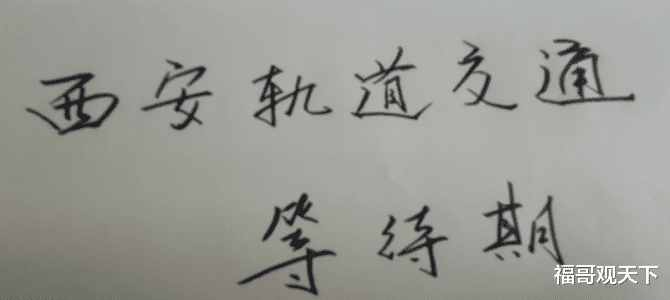 西安轨道交通
等待期
福哥观天下